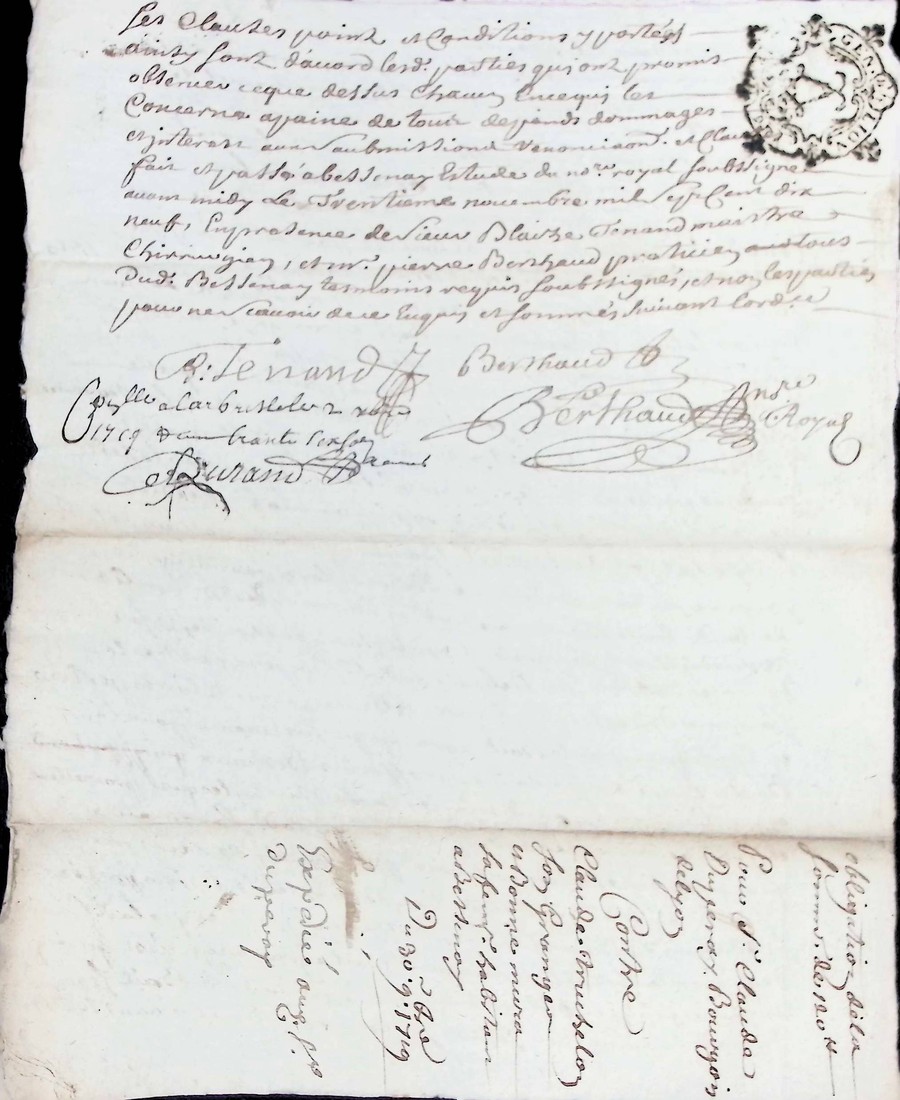 Les Clauses point et Conditions y portées
ainsy sont d'acord lesd. parties qui ont promis
observer ce que dessus Chacun En ce qui les
Concerne a peine de tous depends dommages
et interest aux soubmissions Renonciaon. et Clau
fait et passé a bessenay Estude du nore. royal soubssigne
avant midy Le Trentieme novembre mil sept Cent dix
neuf, En presence de sieur Blaise Tenand maistre
Chirurgien, et mr. pierre Berthaud praticien tous
Dud. Bessenay tesmoins requis soubssignés, et non les parties
pour ne scavoir de ce Enquis et sommés suivant Lord.ce
GEN. DE LION
B: Tenand Berthaud
Berthaud nre Royal
a Larbresle le 2 xbre
1719
Durand
obligation de la
somme de 180 tt
Pour Sr. Claude
Dugeray Bourgois
de Lyon
Contre
Claude truchelon
son Granger
et Bonne mura
sa feme. habitans
a Bessenay
Du 30 9.bre 1719
Expediée
Dugeray